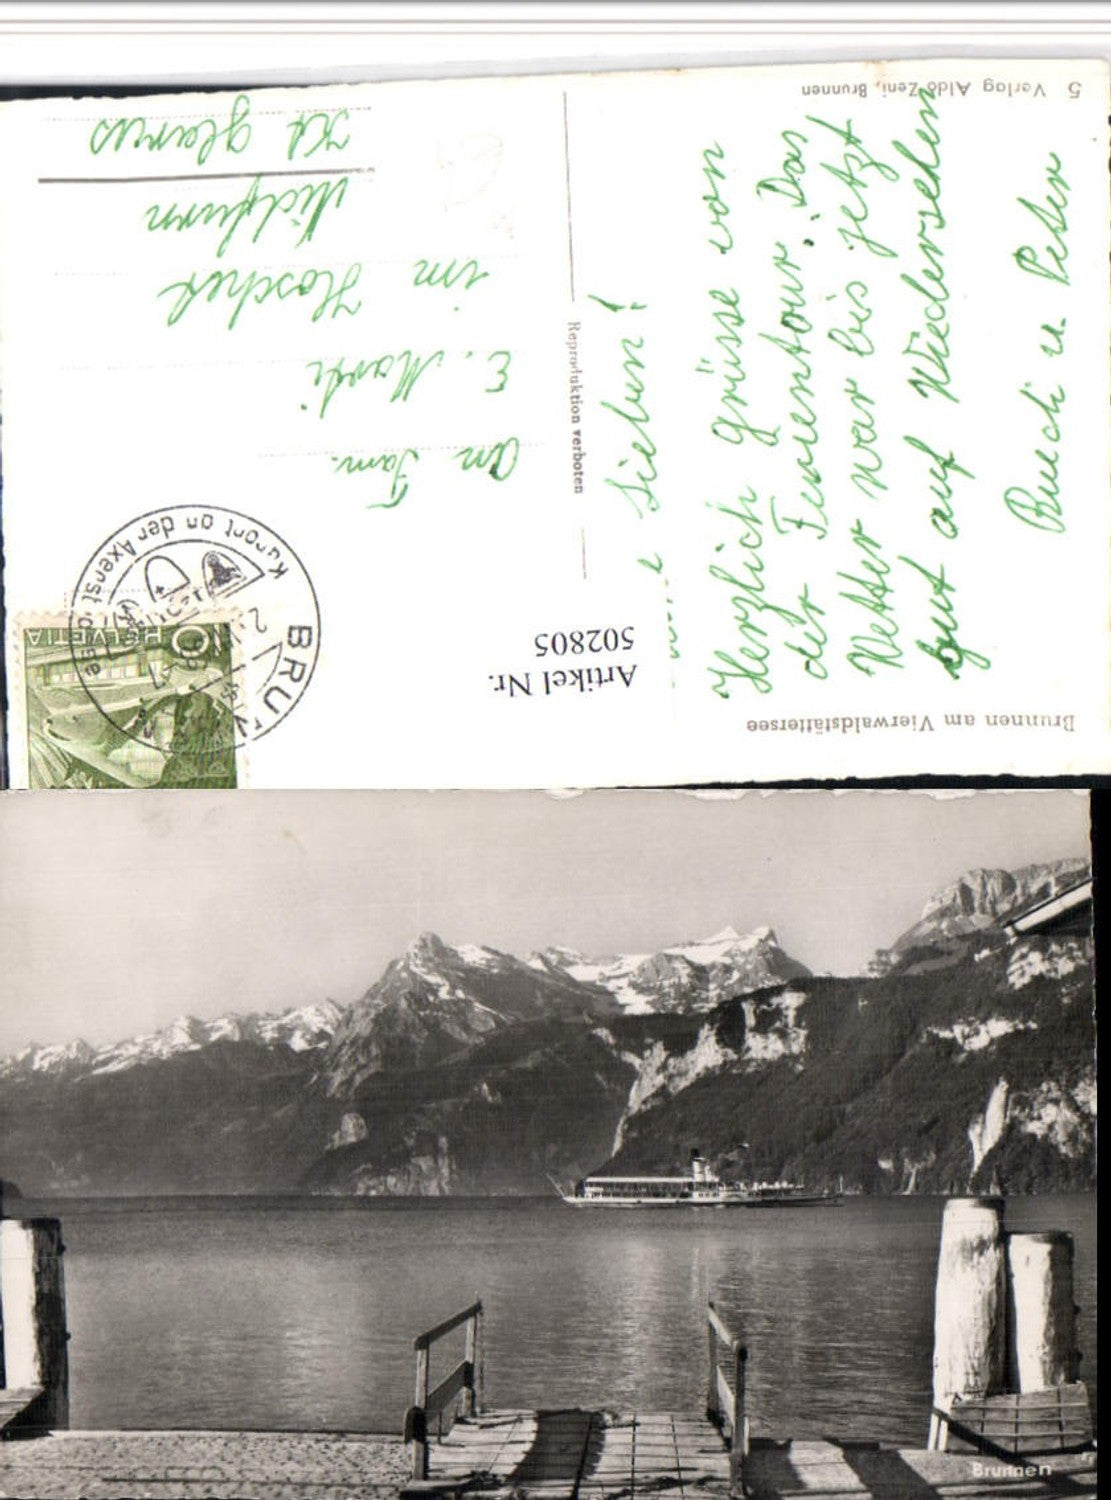 Brunnen am Vierwaldstättersee
Herzlich Grüsse von
der Ferientour. Das
Wetter war bis jetzt
gut auf Wiedersehen
Ruedi u. Peter
lieben!
5 Verlag Aldo Zeni, Brunnen
Reproduktion verboten
Artikel Nr.
502805
BRUN
Kurort an der Axenst
HELVETIA
10
An Fam.
E. Marti
im Hoschet
Nidfurn
Kt glarus
Brunnen